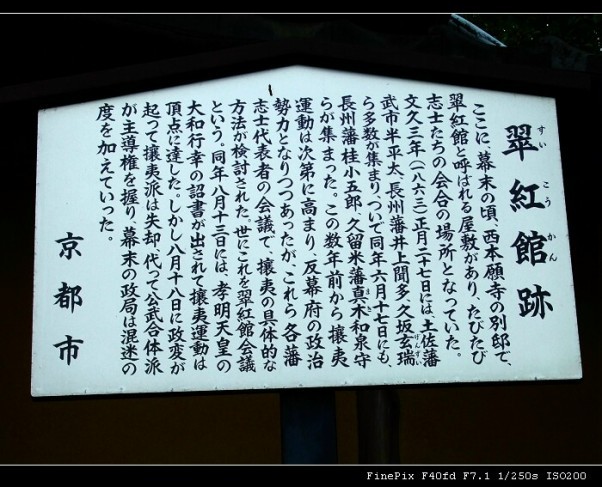 翠紅館跡
すい こう かん
ここに、幕末の頃、西本願寺の別邸で、
翠紅館と呼ばれる屋敷があり、たびたび
志士たちの会合の場所となっていた。
文久三年(一八六三)正月二十七日には、土佐藩
武市半平太、長州藩井上聞多、久坂玄瑞
げんずい
ら多数が集まり、ついで同年六月十七日にも、
長州藩桂小五郎、久留米藩真木和泉守
まき
らが集まった。この数年前から攘夷
運動は次第に高まり、反幕府の政治
勢力となりつつあったが、これら各藩
志士代表者の会議で、攘夷の具体的な
方法が検討された。世にこれを翠紅館会議
という。同年八月十三日には、孝明天皇の
大和行幸の詔書が出されて攘夷運動は
頂点に達した。しかし八月十八日に政変が
起って攘夷派は失却、代って公武合体派
が主導権を握り、幕末の政局は混迷の
度を加えていった。
京都市
FinePix F40fd F7.1 1/250s ISO200